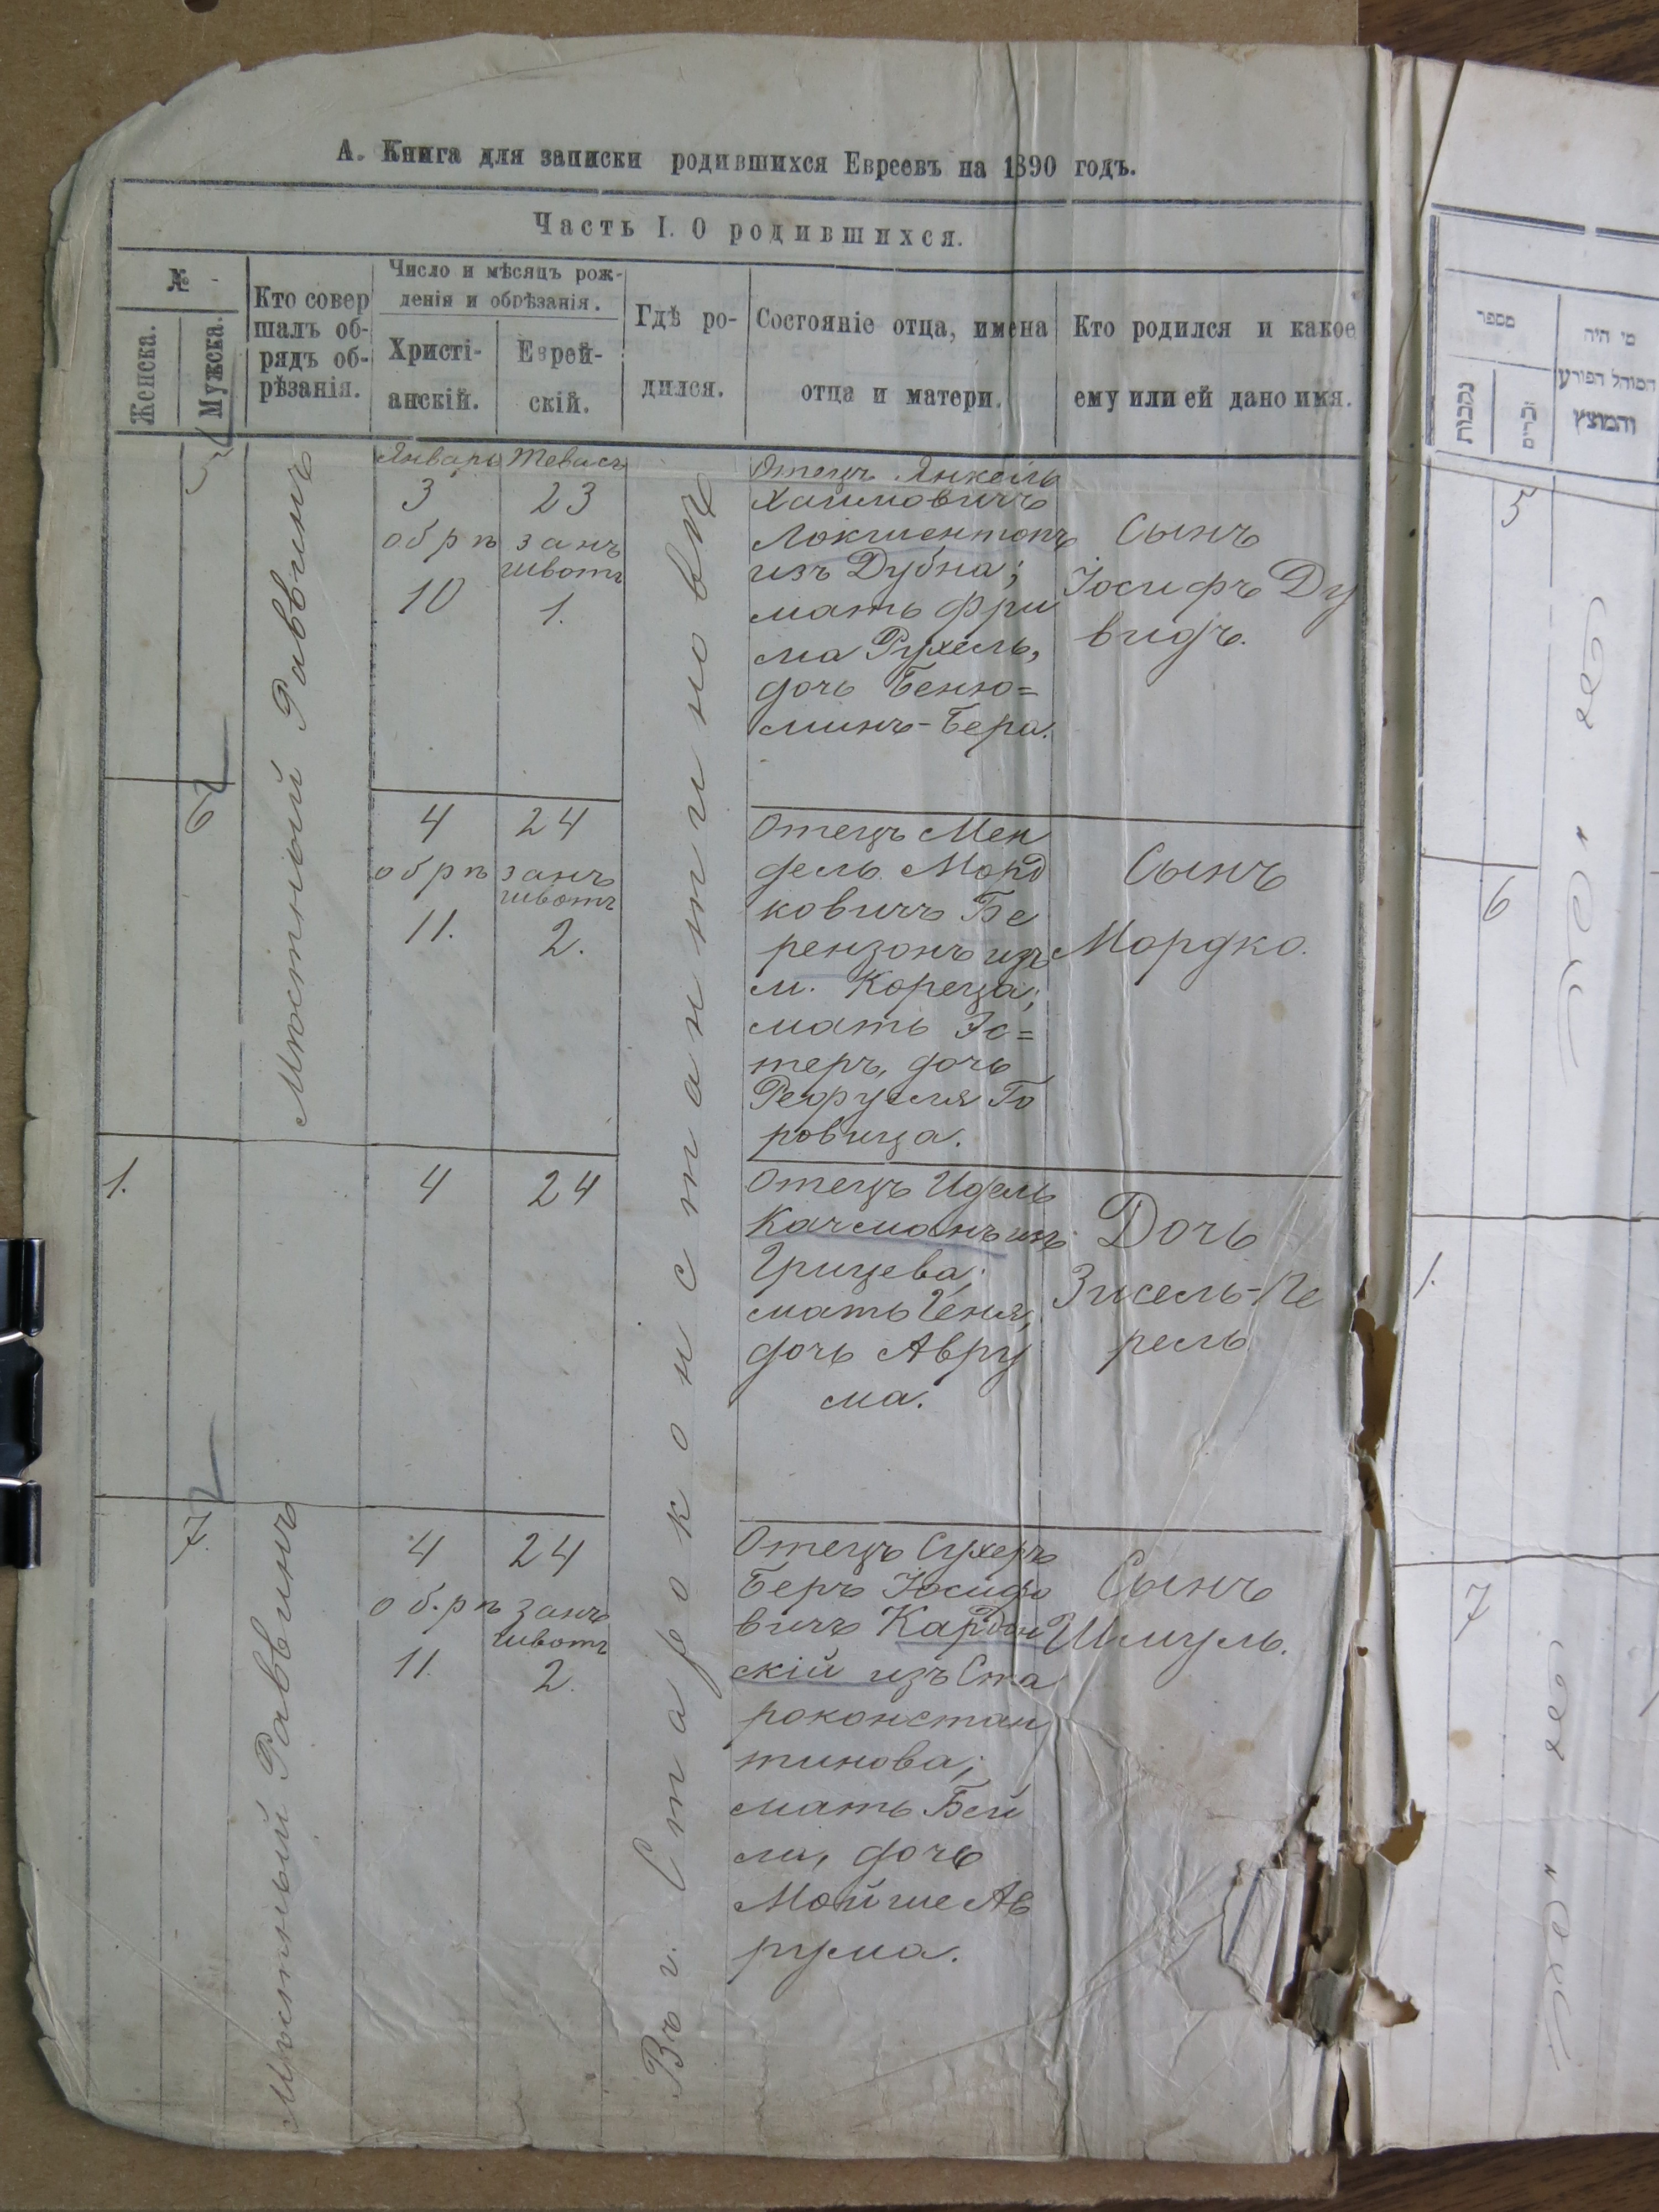 А. Книга для записки родившихся Евреевъ на 1890 годъ.
Часть I. О родившихся.
№
Женска.
Мужска.
Кто совер
шалъ об-
рядъ об-
рѣзанія.
Число и мѣсяцъ рож-
денія и обрѣзанія.
Христі-
анскій.
Еврей-
скій.
Гдѣ ро-
дился.
Состояніе отца, имена
отца и матери.
Кто родился и какое
ему или ей дано имя.
5
Мѣстный Раввинъ
Январь
3
обрѣ
10
Тевисъ
23
занъ
швотъ
1.
Въ г. Староконстантиновѣ
Отецъ Янкель
Хаимовичъ
из Дубна;
мать Фри
ма Рухель,
дочь Беню=
минъ-Бера.
Сынъ
Іосифъ Ду
видъ.
6
4
обрѣ
11.
24
занъ
швотъ
2.
Отецъ Мен
дель Морд
ковичъ Бе
рензонъ изъ
м. Кореца;
мать Эс=
теръ, дочь
Го
ровица.
Сынъ
Мордко.
1.
4
24
Отецъ Идель
Качманъ изъ
Грицева;
мать Геня,
дочь Авру
ма.
Дочь
Зисель-Пе
рель
7.
Мѣстный Раввинъ
4
об.рѣ
11.
24
занъ
швотъ
2.
Отецъ Сухеръ
Беръ Іосифо
вичъ Кардон
скій изъ Ста
роконстан
тинова;
мать Бей
ла, дочь
Мойше Ав
рума.
Сынъ
Шмуль.
מספר
נקבות
זכרים
מי היה
המוהל הפורע
והמוצץ
5
6
1.
7